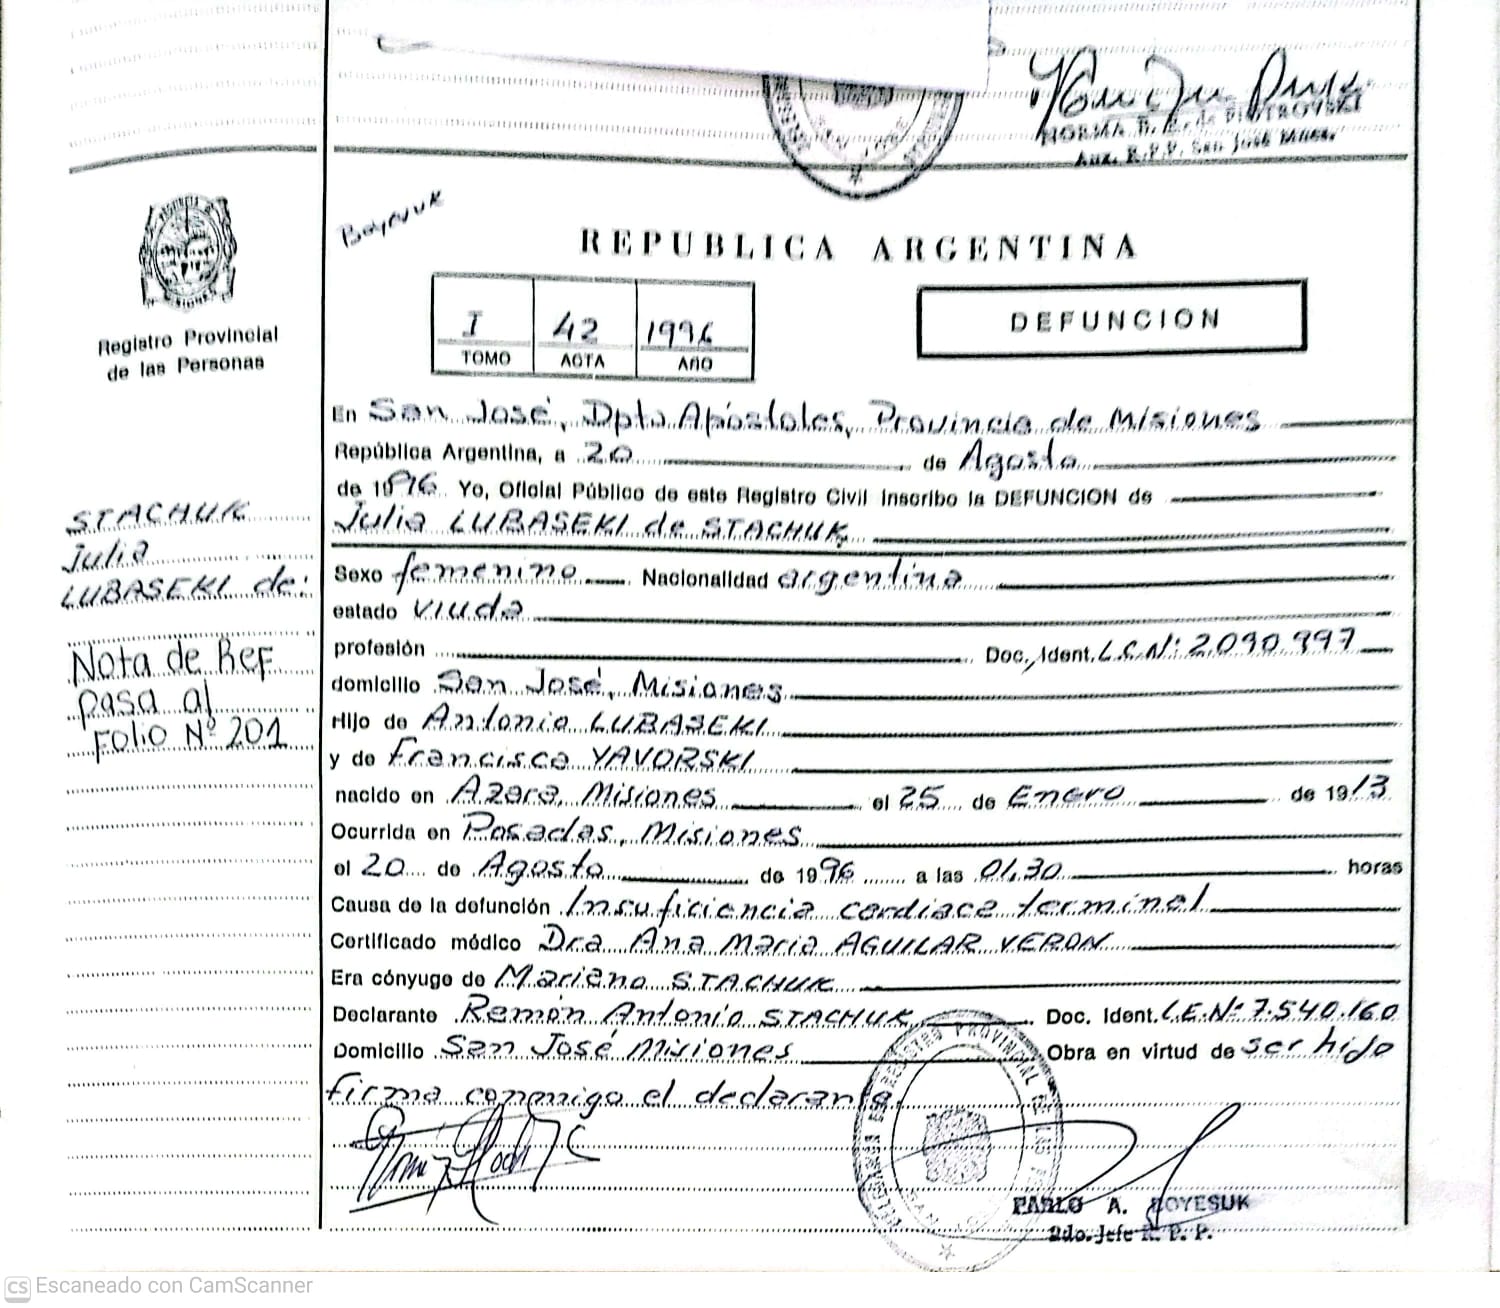 NORMA
Aux. R.P.P. San José Mnes.
Boyesuk
REPUBLICA ARGENTINA
I 42 1996
TOMO ACTA AÑO
DEFUNCION
PROVINCIA DE MISIONES
Registro Provincial
de las Personas
STACHUK
Julia
LUBASEKI de:
Nota de Ref
pasa al
Folio Nº 201
En San José, Dpto Apóstoles, Provincia de Misiones
República Argentina, a 20 de Agosto
de 1996 Yo, Oficial Público de este Registro Civil inscribo la DEFUNCION de
Julia LUBASEKI de STACHUK
Sexo femenino Nacionalidad argentina
estado viuda
profesión Doc. Ident. L.C.Nº: 2.090.997
domicilio San José, Misiones
Hijo de Antonio LUBASEKI
y de Francisca YAVORSKI
nacido en Azara, Misiones el 25 de Enero de 1913
Ocurrida en Posadas, Misiones
el 20 de Agosto de 1996 a las 01,30 horas
Causa de la defunción Insuficiencia cardiaca terminal
Certificado médico Dra Ana Maria AGUILAR VERON
Era cónyuge de Mariano STACHUK
Declarante Ramón Antonio STACHUK Doc. Ident. L.E.Nº 7.540.160
Domicilio San José Misiones Obra en virtud de ser hijo
firma conmigo el declarante.
PABLO A. BOYESUK
2do. Jefe R. P. P.
CS Escaneado con CamScanner